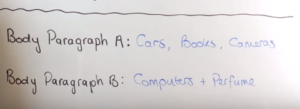 Body Paragraph A: Cars, Books, Cameras
Body Paragraph B: Computers + Perfume